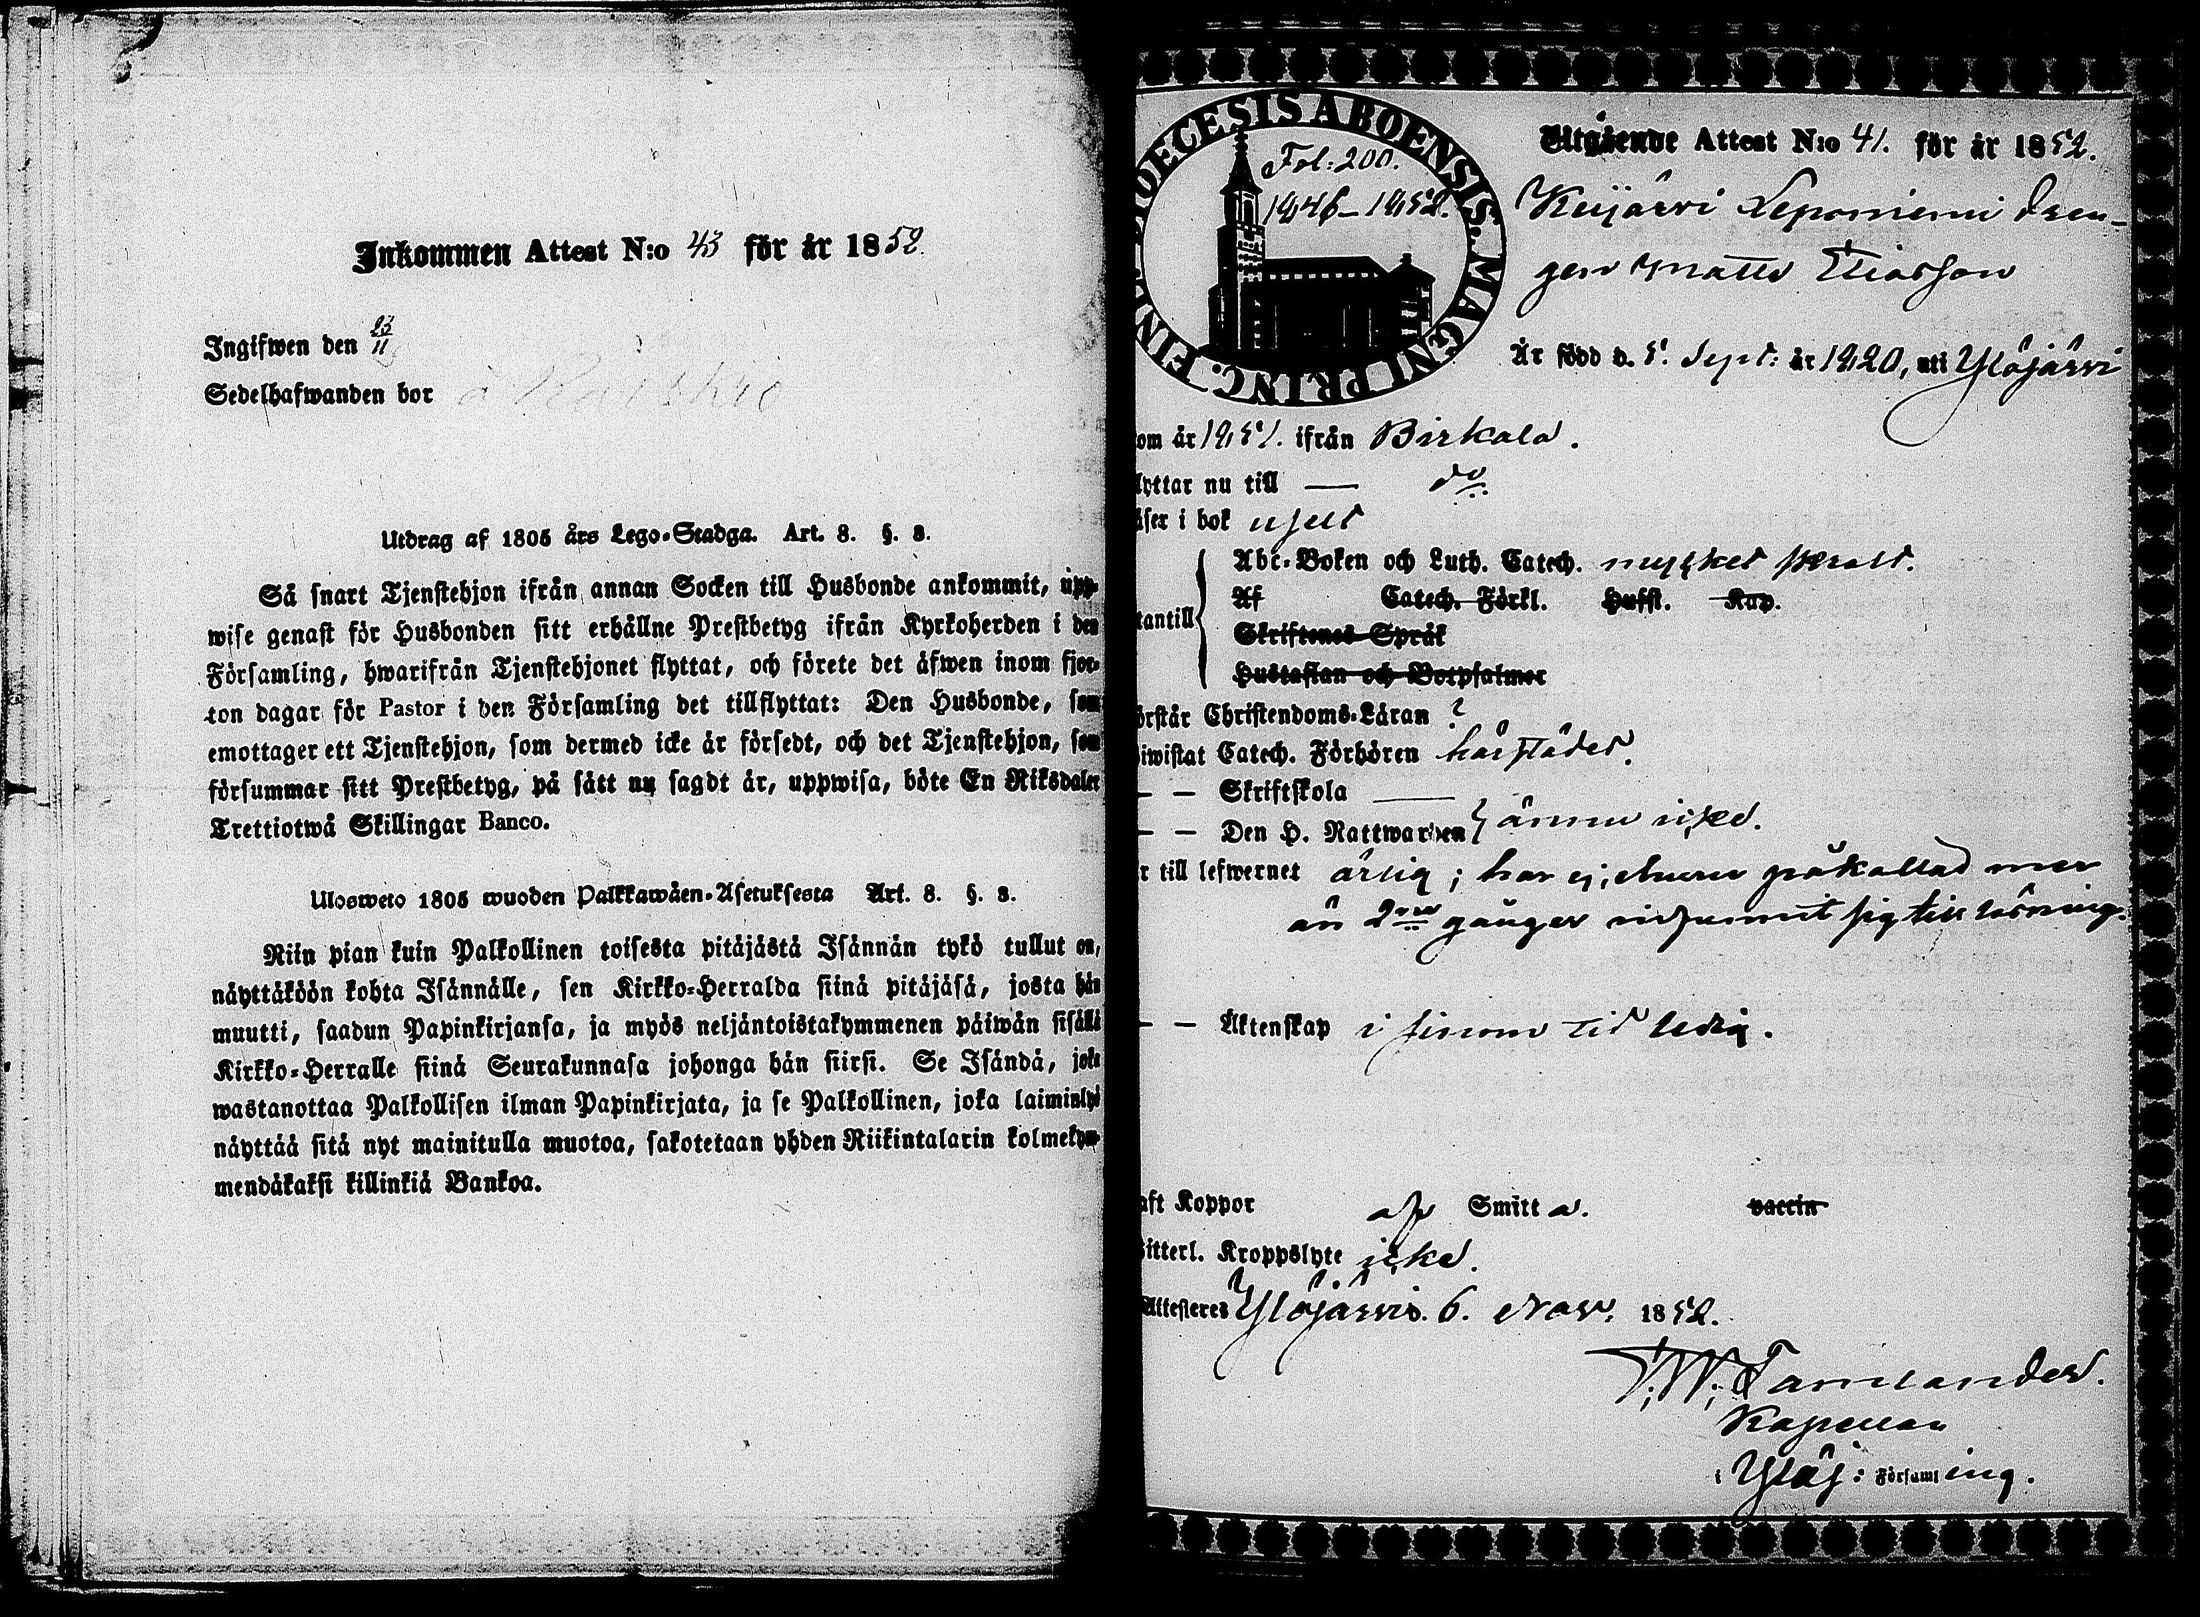 Inkommen Attest N:o 43 för år 1852.
Ingifwen den 23/11
Sedelhafwanden bor å
Utdrag af 1805 års Lego-Stadga. Art. 8. §. 8.
Så snart Tjenstehjon ifrån annan Socken till Husbonde ankommit, upp-
wise genast för Husbonden sitt erhållne Prestbetyg ifrån Kyrkoherden i den
Församling, hwarifrån Tjenstehjonet flyttat, och förete det äfwen inom fjor-
ton dagar för Pastor i den Församling det tillflyttat: Den Husbonde, som
emottager ett Tjenstehjon, som dermed icke är försedt, och det Tjenstehjon, som
försummar sitt Prestbetyg, på sätt nu sagdt är, uppwisa, böte En Riksdaler
Trettiotwå Skillingar Banco.
Ulosweto 1805 wuoden Palkkawäen-Asetuksesta Art. 8. §. 8.
Niin pian kuin Palkollinen toisesta pitäjästä Isännän tykö tullut on,
näyttäköön kohta Isännälle, sen Kirkko-Herralda siinä pitäjäsä, josta hän
muutti, saadun Papinkirjansa, ja myös neljäntoistakymmenen päiwän sisällä
Kirkko-Herralle siinä Seurakunnasa johonga hän siirsi. Se Isändä, joka
wastanottaa Palkollisen ilman Papinkirjata, ja se Palkollinen, joka laiminlyö
näyttää sitä nyt mainitulla muotoa, sakotetaan yhden Riikintalarin kolmekym-
mendäkaksi killinkiä Bankoa.
DIOECESIS ABOENSIS. MAGNI PRINC. FINL.
Fol: 200.
1846–1852.
Utgående Attest N:o 41. för år 1852.
Keijärvi Leponiemi dren-
gen Matts Eliasson
Är född d. 5. Sept: år 1820, uti Ylöjärvi
om år 1851. ifrån Birkala.
lyttar nu till — do.
äser i bok uselt
Abc-Boken och Luth. Catech. mycket svalt.
Af Catech. Förkl. Husst. Kap.
tantill
Skriftenes Språk
Hustaflan och Botpsalmer
örstår Christendoms-Läran ?
iwistat Catech. Förhören härstädes.
— — Skriftskola —
— — Den H. Nattwarden } ännu icke.
r till lefwernet ärlig; har ej, ehuru påkallad mer
än 2ne gånger infunnit sig till läsning.
— — Äktenskap i sinom tid ledig.
aft Koppor af Smitta. vaccin
itterl. Kroppslyte icke.
Attesteres Ylöjärvi d. 6. Nov. 1852.
Tamlander.
Kapellan
i Ylöj: Församling.